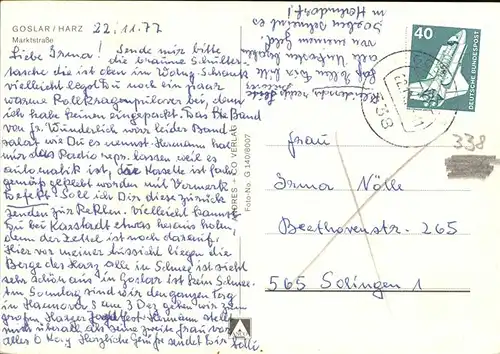 GOSLAR / HARZ
Marktstraße
22. 11. 77
Liebe Irma! Sende mir bitte
die braune Schulter-
tasche die ist oben im Schrank
vielleicht legst Du noch ein paar
warme Rollkragenpullover bei, denn
ich habe keinen eingepackt. Das Band
von Fr. Wunderlich war leider Band
salat wie Du es nennst. Hermann hat
mir das Radio repr. lassen weil es
automatik ist, die Kasette ist fach
gemäß geklebt worden mit Vermerk
Defekt. Soll ich Dir diese zurück
senden zur Reklm. Vielleicht kannst
Du bei Karstadt etwas heraus holen,
denn der Zettel ist noch darauf.
Hier vor meiner Aussicht liegen die
Berge des Harz alle in Schnee es sieht
sehr schön aus in Goslar ist kein Schnee.
Am Sonntag sind wir den ganzen Tag
in Hannover
großen Harzer Hermann stellt
mich überall als seine zweite Frau vor
alles O Kay Herzliche Grüße sendet Dir
soeben scheint es
in
von meinem Geld
alle Unkosten
bitte
CO VERLAG
Foto-No. G 140/8007
40
DEUTSCHE BUNDESPOST
338
Frau
Irma Nölle
Beethovenstr. 265
565 Solingen 1